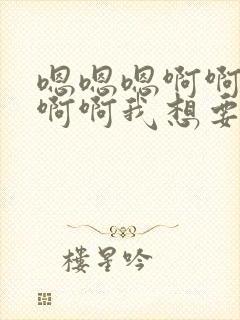 嗯嗯嗯啊啊
啊啊我想要
楼星吟